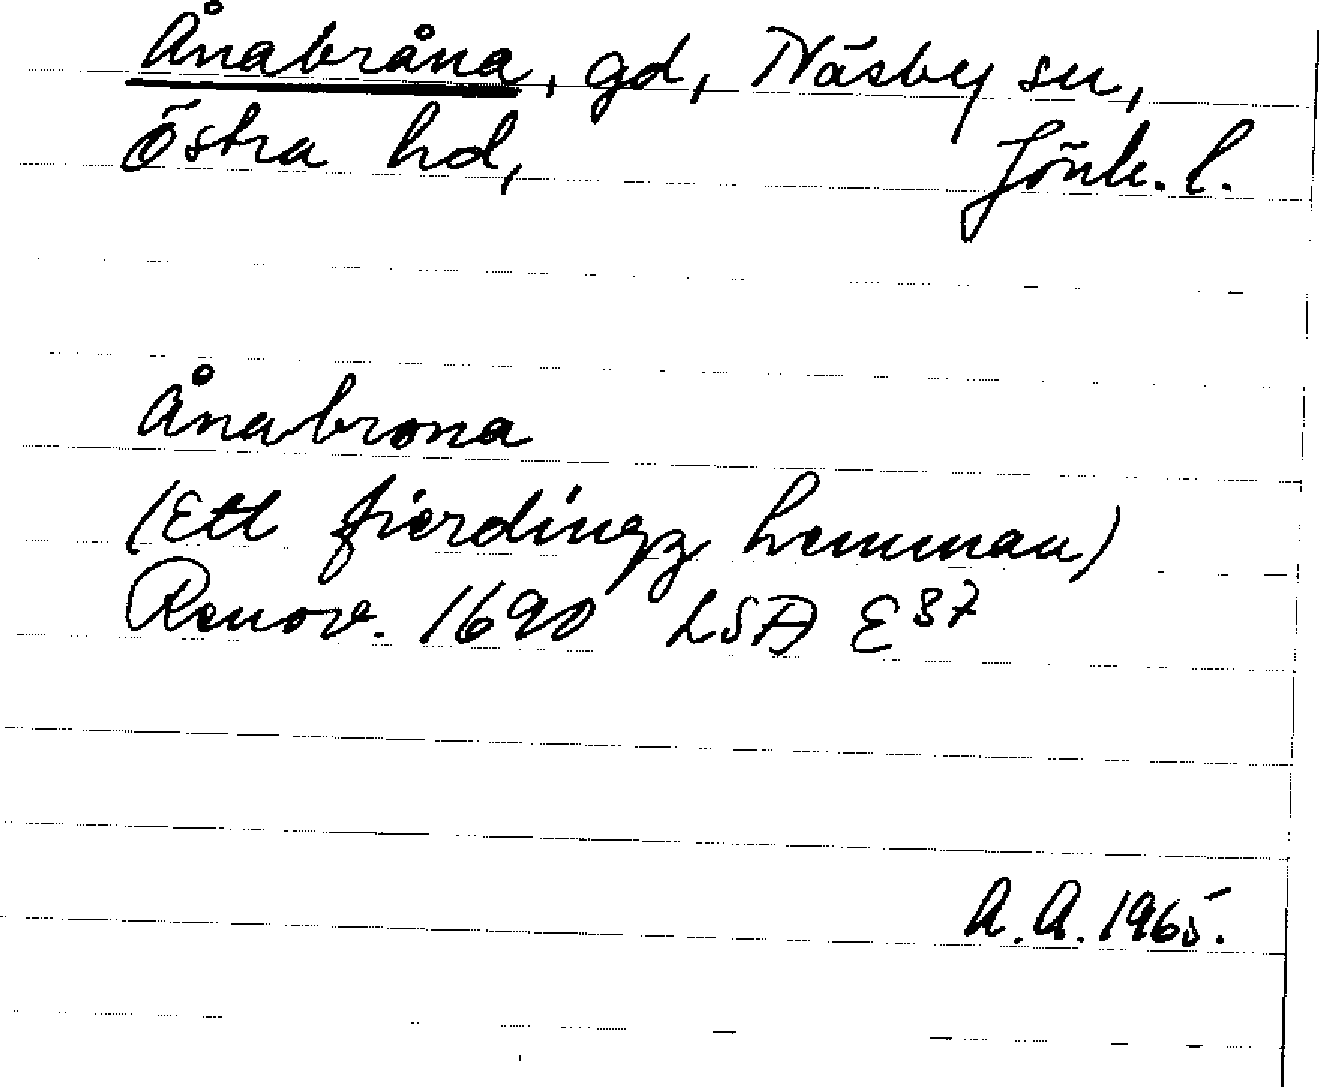 Ånabråna, gd, Näsby sn,
Östra hd, Jönk. l.
Ånabrona
(Ett fierdingz hemman)
Renov. 1690 LSA E 37
A.A. 1965.